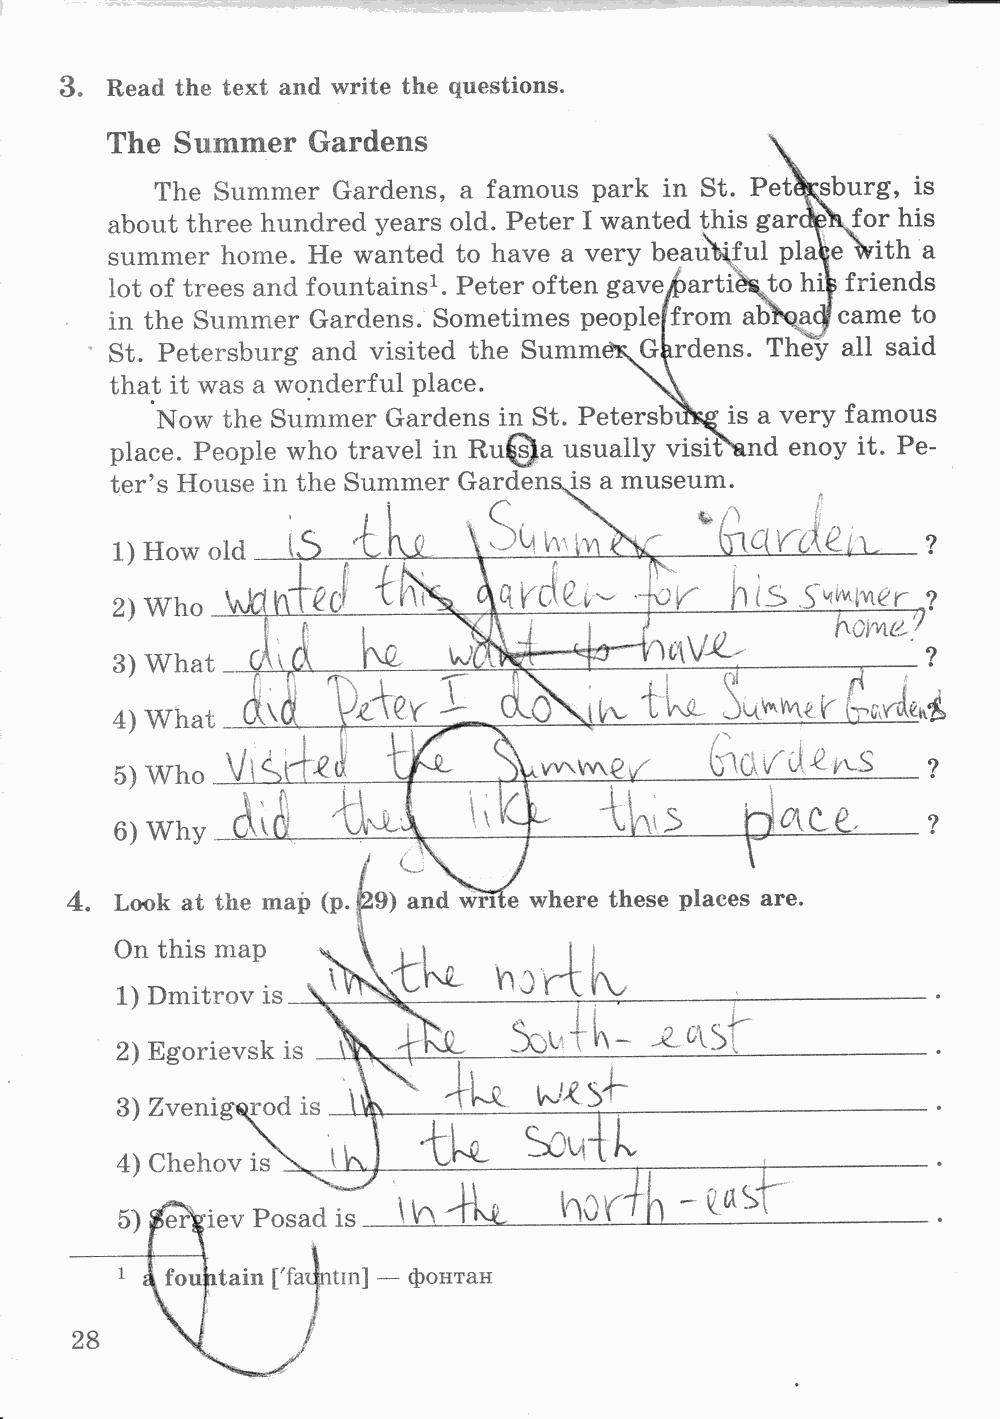 3. Read the text and write the questions.
The Summer Gardens
The Summer Gardens, a famous park in St. Petersburg, is
about three hundred years old. Peter I wanted this garden for his
summer home. He wanted to have a very beautiful place with a
lot of trees and fountains¹. Peter often gave parties to his friends
in the Summer Gardens. Sometimes people from abroad came to
St. Petersburg and visited the Summer Gardens. They all said
that it was a wonderful place.
Now the Summer Gardens in St. Petersburg is a very famous
place. People who travel in Russia usually visit and enoy it. Pe-
ter's House in the Summer Gardens is a museum.
1) How old is the Summer Garden ?
2) Who wanted this garden for his summer ?
home?
3) What did he want to have ?
4) What did Peter I do in the Summer Gardens
5) Who visited the Summer Gardens ?
6) Why did they like this place ?
4. Look at the map (p. 29) and write where these places are.
On this map
1) Dmitrov is in the north .
2) Egorievsk is in the south-east .
3) Zvenigorod is in the west .
4) Chehov is in the south .
5) Sergiev Posad is in the north-east .
¹ a fountain [ˈfaʊntɪn] — фонтан
28